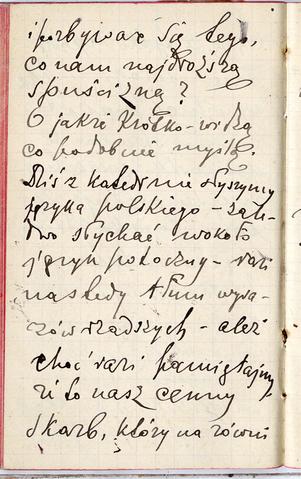 i pozbywać się tego,
co nam najdroższą
spuścizną?
O jakże krótko-widzą
co podobnie myślą.
Dziś z katedr nie słyszymy
języka polskiego - zale-
dwo słychać wokoło
język potoczny - razi
nas kiedy tłum wyra-
zów rzadszych - ależ
choć razi pamiętajmy,
że to nasz cenny
skarb, który na równi